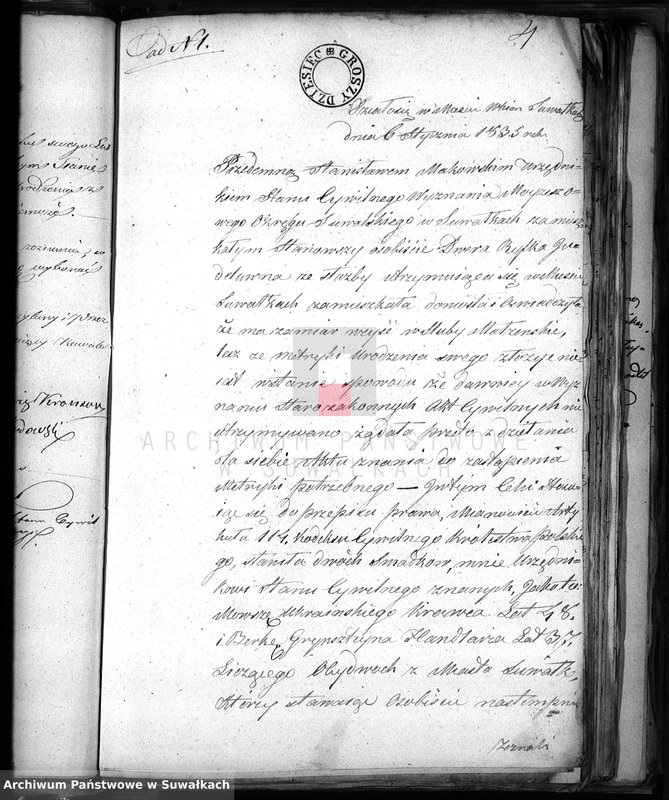 ad N 1.
4
DZIESIĘĆ GROSZY
Działo się w Mieście Suwałkach
dnia 6 Stycznia 1835 roku
Przedemną Stanisławem Makowskim Urzędni-
kiem Stanu Cywilnego Wyznania Moyżeszo-
wego Okręgu Suwalskiego w Suwałkach zamiesz-
kałym Stanowszy osobiście Dwera Ryfka
ze służby utrzymuiąca się w Mieście
Suwałkach zamieszkała doniosła i oświadczyła
że ma zamiar wejść w śluby Małżeńskie,
lecz że metryki Urodzenia swego złożyć nie
iest w stanie z powodu że dawniey w Wyz-
naniu Starozakonnych Akt Cywilnych nie
utrzymywano żądała przeto działania
dla siebie Aktu znania do zastąpienia
Metryki potrzebnego — w tym Celu stosu-
iąc się do przepisu prawa, Mianowicie Arty-
kułu 114 Kodeksu Cywilnego Królestwa Polskie-
go, stawiła dwóch Świadków, mnie Urzędni-
kowi Stanu Cywilnego znanych, Jako to
Mowszę Ukraińskiego Krawca Lat 48.
i Berkę Grynsztyna Handlarza Lat 37.
Liczącego Obydwoch z Miasta Suwałk,
Którzy stawaiąc Osobiście następnie
zeznali
ARCHIWUM PAŃSTWOWE
W SUWAŁKACH
Archiwum Państwowe w Suwałkach